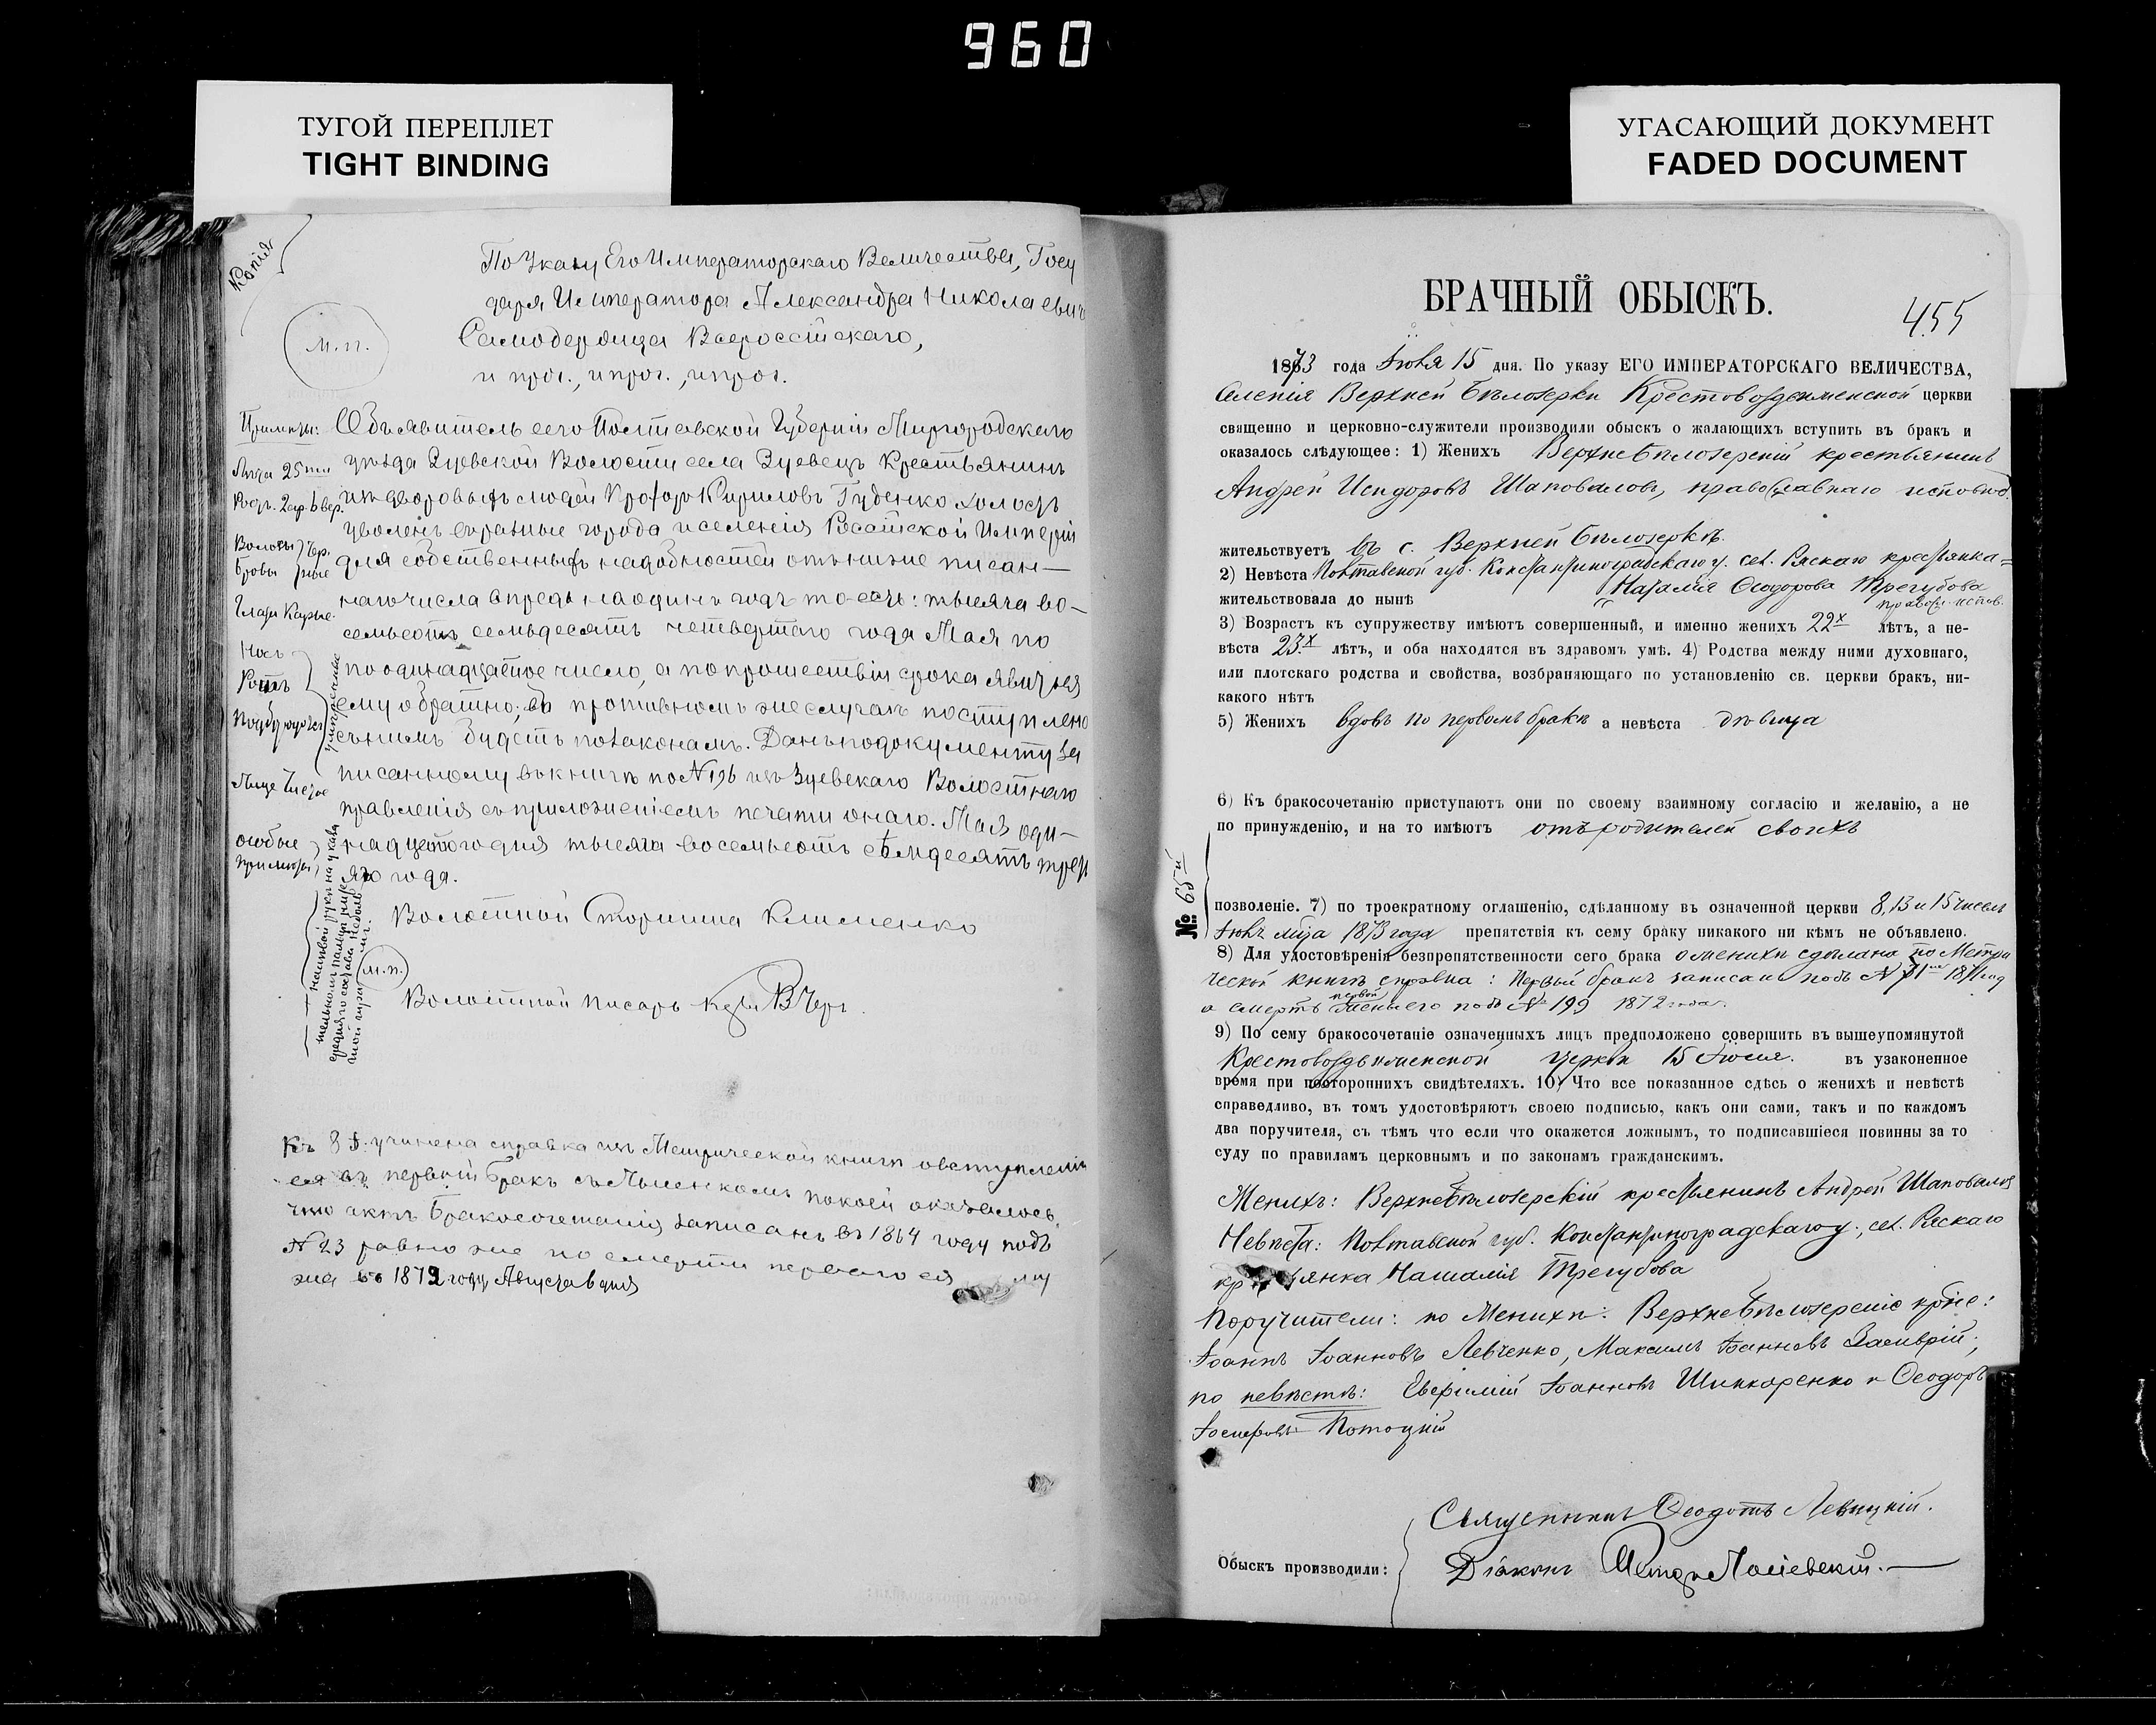 960
ТУГОЙ ПЕРЕПЛЕТ
TIGHT BINDING
УГАСАЮЩИЙ ДОКУМЕНТ
FADED DOCUMENT
Копія
М.П.
По Указу Его Императорскаго Величества, Госу
даря Императора Александра Николаевич
Самодержца Всероссійскаго,
и проч., и проч., и проч.
Приметы:
Лета 25ти
Волосы
Брови
Глаза Каріе
Носъ
Ротъ
Подбородокъ
умеренные
Лице Чистое
особые
приметы
Объявитель сего Полтавской Губерніи Миргородскаго
уѣзда Зуевской Волости села Зуевецъ Крестьянинъ
изъ дворовыхъ людей Профоръ Кириловъ Гуденко холостъ
уволенъ въ разные города и селенія Россійской Имперіи
для собственныхъ надобностей отъ ниже писан–
наго числа впредь на одинъ годъ то есть: тысяча во–
семьсотъ семьдесятъ четвертаго года Мая по
по одинадцатое число, а по прошествіи срока явиться
ему обратно; въ противномъ же случаѣ поступлено
съ нимъ будетъ по законамъ. Данъ по документу за
писанному въ книгѣ по № 196 изъ Зуевскаго Волостнаго
правленія съ приложеніемъ печати онаго. Мая оди–
надцатого дня тысяча восемьсотъ семдесятъ треть
яго года.
Волостной Старшина Клименко
М.П.
Волостной писарь
Къ 8 п. учинена справка изъ Метрической книги о вступленіи
ея въ первый бракъ съ покоей оказалось,
что актъ бракосочетанія записанъ въ 1864 году подъ
№ 23 равно же по смерти перваго ея му
жа въ 1872 году Августа дня
БРАЧНЫЙ ОБЫСКЪ.
455
1873 года Іюля 15 дня. По указу ЕГО ИМПЕРАТОРСКАГО ВЕЛИЧЕСТВА,
Селенія Верхней Бѣлозерки Крестовоздвиженской церкви
священно и церковно-служители производили обыскъ о жалающихъ вступить въ бракъ и
оказалось слѣдующее: 1) Женихъ Верхнебѣлозерскій крестьянинъ
Андрей Исидоровъ Шаповаловъ, православнаго исповѣд.
жительствуетъ въ с. Верхней Бѣлозеркѣ.
2) Невѣста Полтавской губ. Константиноградскаго у. сел. Ряскаго крестьянка=
жительствовала до нынѣ Наталія Ѳеодорова Трегубова
правосл. испов.
3) Возрастъ къ супружеству имѣютъ совершенный, и именно женихъ 22х лѣтъ, а не-
вѣста 23х лѣтъ, и оба находятся въ здравомъ умѣ. 4) Родства между ними духовнаго,
или плотскаго родства и свойства, возбраняющаго по установленію св. церкви бракъ, ни-
какого нѣтъ
5) Женихъ вдовъ по первомъ бракѣ а невѣста дѣвица
6) Къ бракосочетанію приступаютъ они по своему взаимному согласію и желанію, а не
по принужденію, и на то имѣютъ отъ родителей своихъ
№ 65й
позволеніе. 7) по троекратному оглашенію, сдѣланному въ означенной церкви 8, 13 и 15 чиселъ
мѣсяца 1873 года препятствія къ сему браку никакого ни кѣмъ не объявлено.
8) Для удостовѣренія безпрепятственности сего брака о женихѣ сдѣлана по Метри
ческой книгѣ справка: Первый бракъ записанъ подъ № 71 18 год
а смерть первой жены его подъ № 199 1872 года.
9) По сему бракосочетаніе означенныхъ лицъ предположено совершить въ вышеупомянутой
Крестовоздвиженской церкви 15 Іюля. въ узаконенное
время при постороннихъ свидѣтеляхъ. 10) Что все показанное сдѣсь о женихѣ и невѣстѣ
справедливо, въ томъ удостовѣряютъ своею подписью, какъ они сами, такъ и по каждомъ
два поручителя, съ тѣмъ что если что окажется ложнымъ, то подписавшіеся повинны за то
суду по правиламъ церковнымъ и по законамъ гражданскимъ.
Женихъ: Верхнебѣлозерскій крестьянинъ Андрей Шаповаловъ
Невѣста: Полтавской губ. Константиноградскаго у., сел. Ряскаго
крестьянка Наталія Трегубова
Поручители: по Женихѣ: Верхнебѣлозерскіе кр–не:
Іоаннъ Іоанновъ Левченко, Максимъ Іоанновъ
по невѣстѣ: Евфимій Іоанновъ Шинкаренко и Ѳеодоръ
Іосифовъ Потоцкій
Священникъ Ѳеодотъ Левицкій.
Обыскъ производили:
Діаконъ Петръ